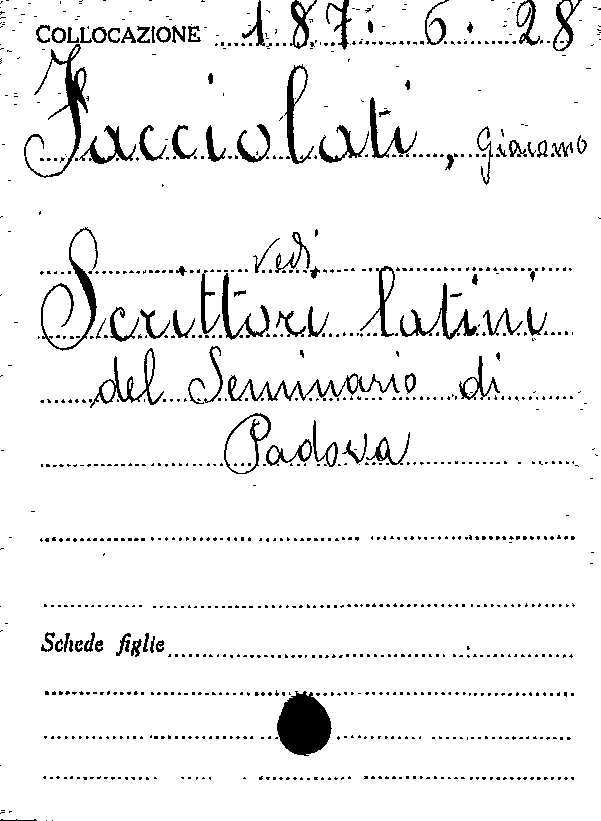 COLLOCAZIONE 187. 6. 28
Facciolati, Giacomo
vedi
Scrittori latini
del Seminario di
Padova
Schede figlie